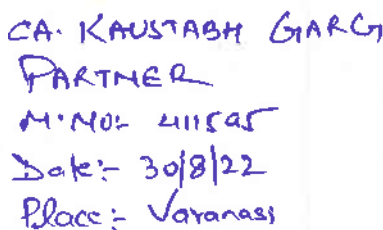 CA. KAUSTABH GARG
PARTNER
M.NO:- 411595
Date:- 30/8/22
Place:- Varanasi